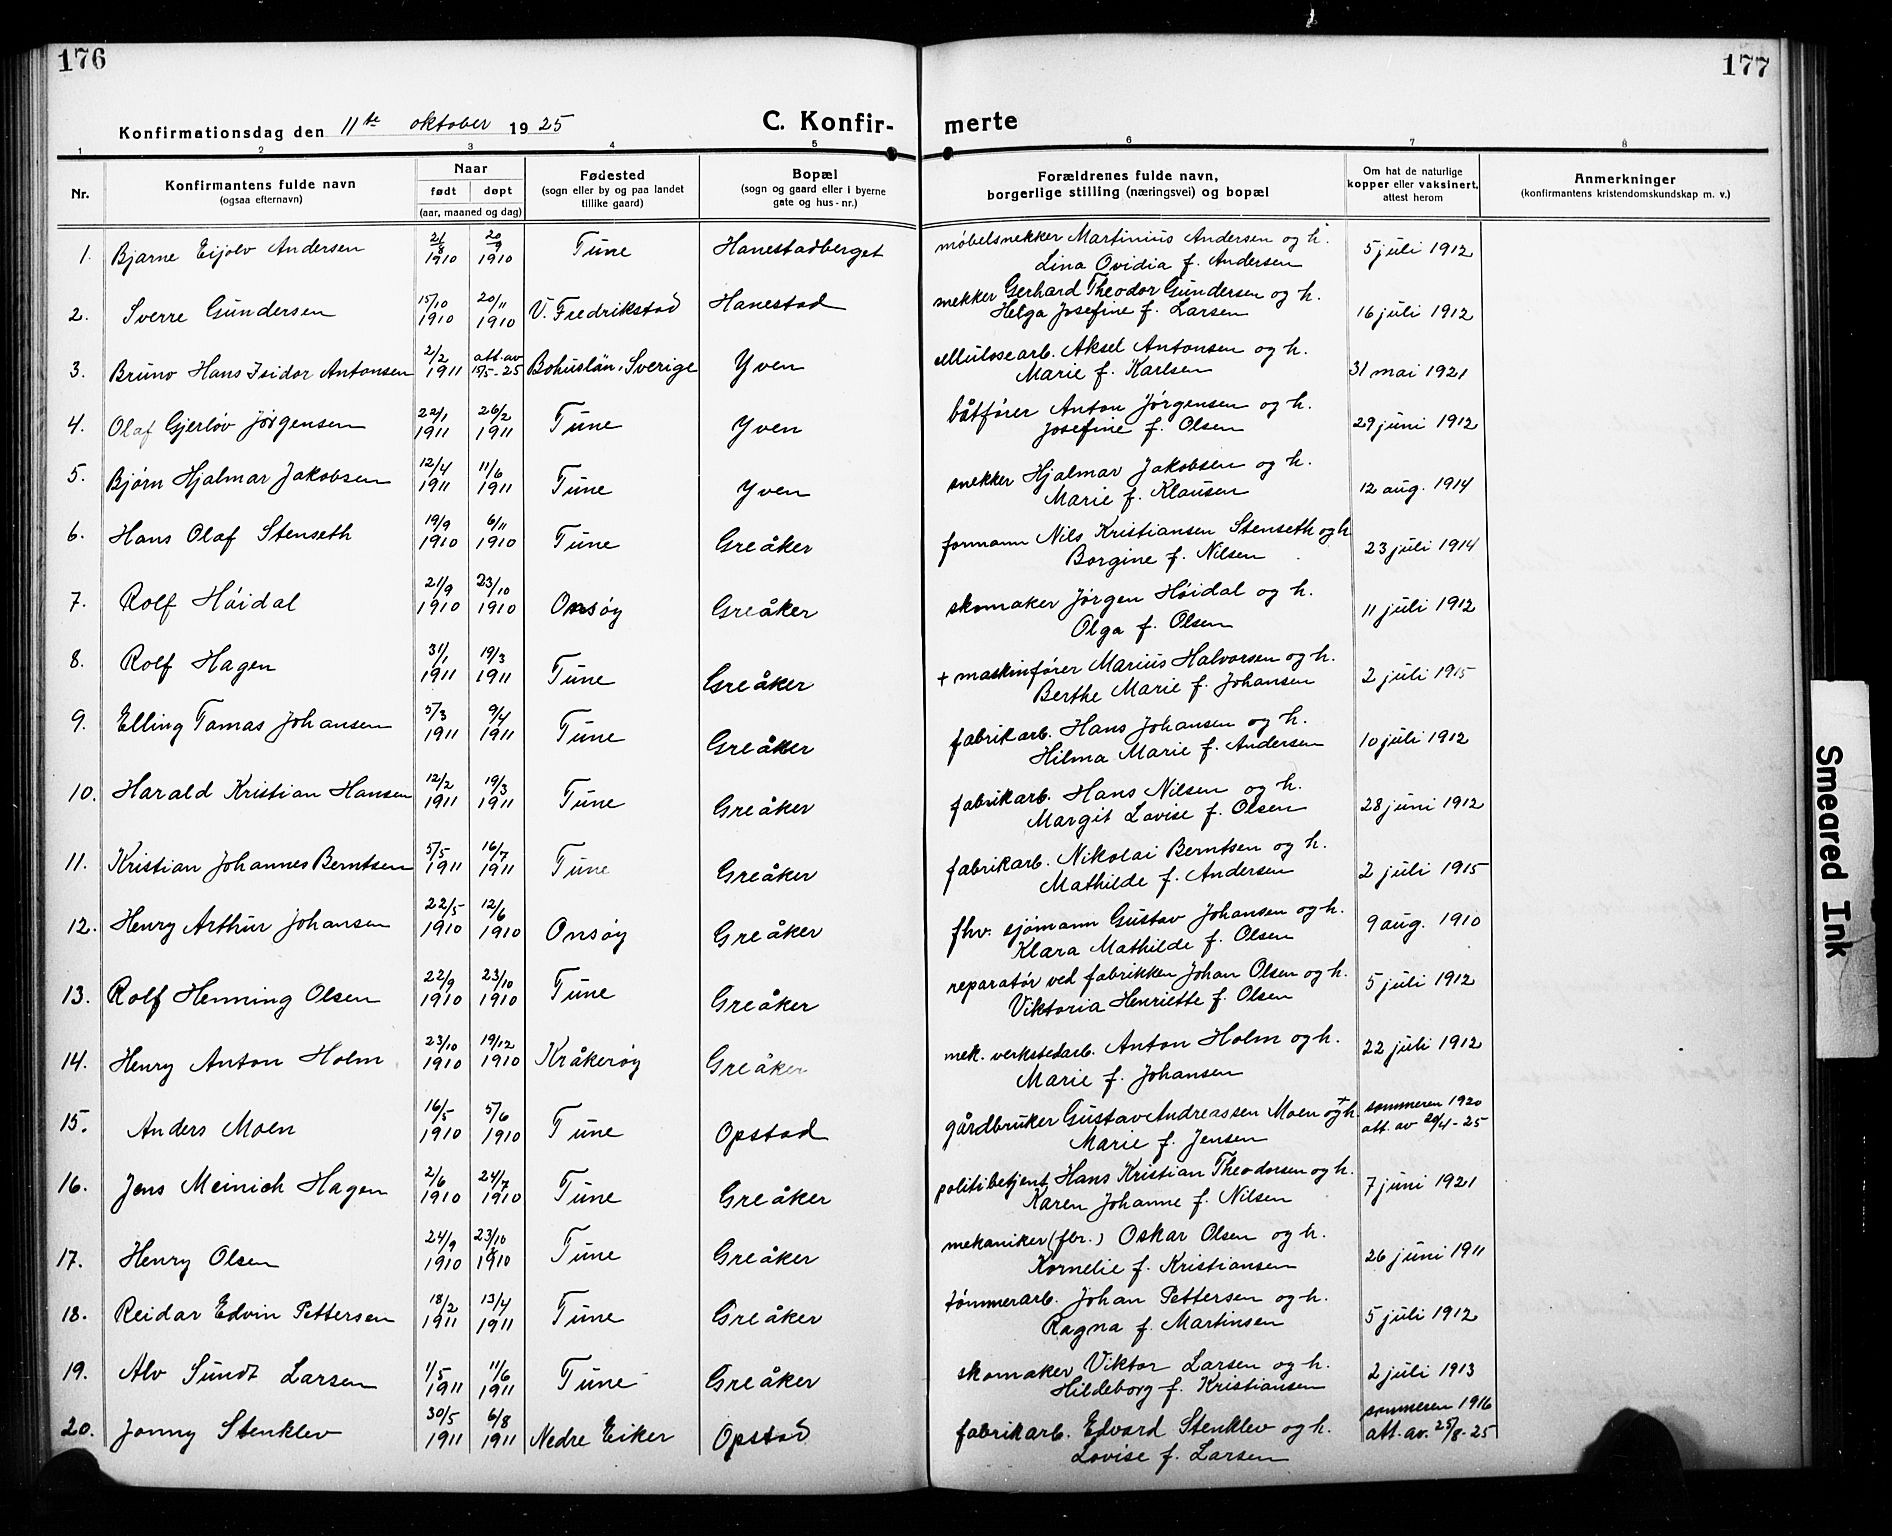 176
177
Konfirmationsdag den 11te oktober 1925
C. Konfir- merte
1 2 3 4 5 6 7 8
Nr.
Konfirmantens fulde navn
(ogsaa efternavn)
Naar
født døpt
(aar, maaned og dag)
Fødested
(sogn eller by og paa landet
tillike gaard)
Bopæl
(sogn og gaard eller i byerne
gate og hus-nr.)
Forældrenes fulde navn,
borgerlige stilling (næringsvei) og bopæl
Om hat de naturlige
kopper eller vaksinert,
attest herom
Anmerkninger
(konfirmantens kristendomskundskap m. v.)
1. Bjarne Eijolv Andersen 21/8 1910 20/9 1910 Tune Hanestadberget møbelsnekker Martinius Andersen og h. 5 juli 1912
Lina Ovidia f. Andersen
2. Sverre Gundersen 15/10 1910 20/11 1910 V. Fredrikstad Hanestad snekker Gerhard Theodor Gundersen og h. 16 juli 1912
Helga Josefine f. Larsen
3. Bruno Hans Isidor Antonsen 2/2 1911 att. av 15/5-25 Bohuslän, Sverige Yven cellulosearb. Aksel Antonsen og h. 31 mai 1921
Marie f. Karlsen
4. Olaf Gjerløv Jørgensen 22/1 1911 26/2 1911 Tune Yven båtfører Anton Jørgensen og h. 29 juni 1912
Josefine f. Olsen
5. Bjørn Hjalmar Jakobsen 12/4 1911 11/6 1911 Tune Yven snekker Hjalmar Jakobsen og h. 12 aug. 1914
Marie f. Klausen
6. Hans Olaf Stenseth 19/9 1910 6/11 1910 Tune Greåker formann Nils Kristiansen Stenseth og h. 23 juli 1914
Borgine f. Nilsen
7. Rolf Höidal 21/9 1910 23/10 1910 Onsøy Greåker skomaker Jørgen Höidal og h. 11 juli 1912
Olga f. Olsen
8. Rolf Hagen 31/1 1911 19/3 1911 Tune Greåker + maskinfører Marius Halvorsen og h. 2 juli 1915
Berthe Marie f. Johansen
9. Elling Tomas Johansen 5/3 1911 9/4 1911 Tune Greåker fabrikarb. Hans Johansen og h. 10 juli 1912
Hilma Marie f. Andersen
10. Harald Kristian Hansen 12/2 1911 19/3 1911 Tune Greåker fabrikarb. Hans Nilsen og h. 28 juni 1912
Margit Lovise f. Olsen
11. Kristian Johannes Berntsen 5/5 1911 16/7 1911 Tune Greåker fabrikarb. Nikolai Berntsen og h. 2 juli 1915
Mathilde f. Andersen
12. Henry Arthur Johansen 22/5 1910 12/6 1910 Onsøy Greåker fhv. sjømann Gustav Johansen og h. 9 aug. 1910
Klara Mathilde f. Olsen
13. Rolf Henning Olsen 22/9 1910 23/10 1910 Tune Greåker reparatør ved fabrikken Johan Olsen og h. 5 juli 1912
Viktoria Henriette f. Olsen
14. Henry Anton Holm 23/10 1910 19/12 1910 Kråkerøy Greåker mek. verkstedarb. Anton Holm og h. 22 juli 1912
Marie f. Johansen
15. Anders Moen 16/5 1910 5/6 1910 Tune Opstad gårdbruker Gustav Andreassen Moen og + h. sommeren 1920
Marie f. Jensen att. av 20/4-25
16. Jens Meinich Hagen 2/6 1910 24/7 1910 Tune Greåker politibetjent Hans Kristian Theodorsen og h. 7 juni 1921
Karen Johanne f. Nilsen
17. Henry Olsen 24/9 1910 23/10 1910 Tune Greåker mekaniker (fbr.) Oskar Olsen og h. 26 juni 1911
Kornelie f. Kristiansen
18. Reidar Edvin Pettersen 18/2 1911 13/4 1911 Tune Greåker tømmerarb. Johan Pettersen og h. 5 juli 1912
Ragna f. Martinsen
19. Alv Sundt Larsen 1/5 1911 11/6 1911 Tune Greåker skomaker Viktor Larsen og h. 2 juli 1913
Hildeborg f. Kristiansen
20. Jonny Stenklev 30/5 1911 6/8 1911 Nedre Eiker Opstad fabrikarb. Edvard Stenklev og h. sommeren 1916
Lovise f. Larsen att. av. 25/8-25
Smeared Ink